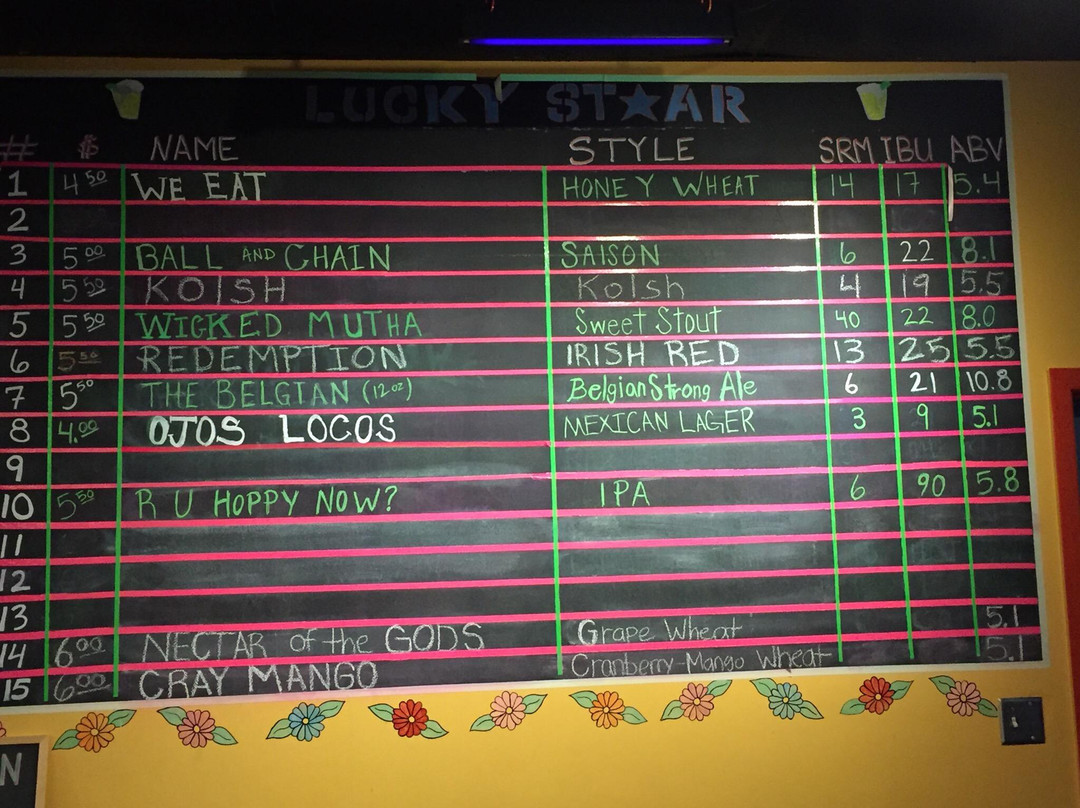 LUCKY ST★AR
# $ NAME STYLE SRM IBU ABV
1 4 50 WE EAT HONEY WHEAT 14 17 5.4
2
3 5 00 BALL AND CHAIN SAISON 6 22 8.1
4 5 50 KOISH Kolsh 4 19 5.5
5 5 50 WICKED MUTHA Sweet Stout 40 22 8.0
6 5 50 REDEMPTION IRISH RED 13 25 5.5
7 5 50 THE BELGIAN (12 oz) Belgian Strong Ale 6 21 10.8
8 4.00 OJOS LOCOS MEXICAN LAGER 3 9 5.1
9
10 5 50 R U HOPPY NOW? IPA 6 90 5.8
11
12
13
14 6 00 NECTAR of the GODS Grape Wheat 5.1
15 6 00 CRAY MANGO Cranberry-Mango Wheat 5.1
N